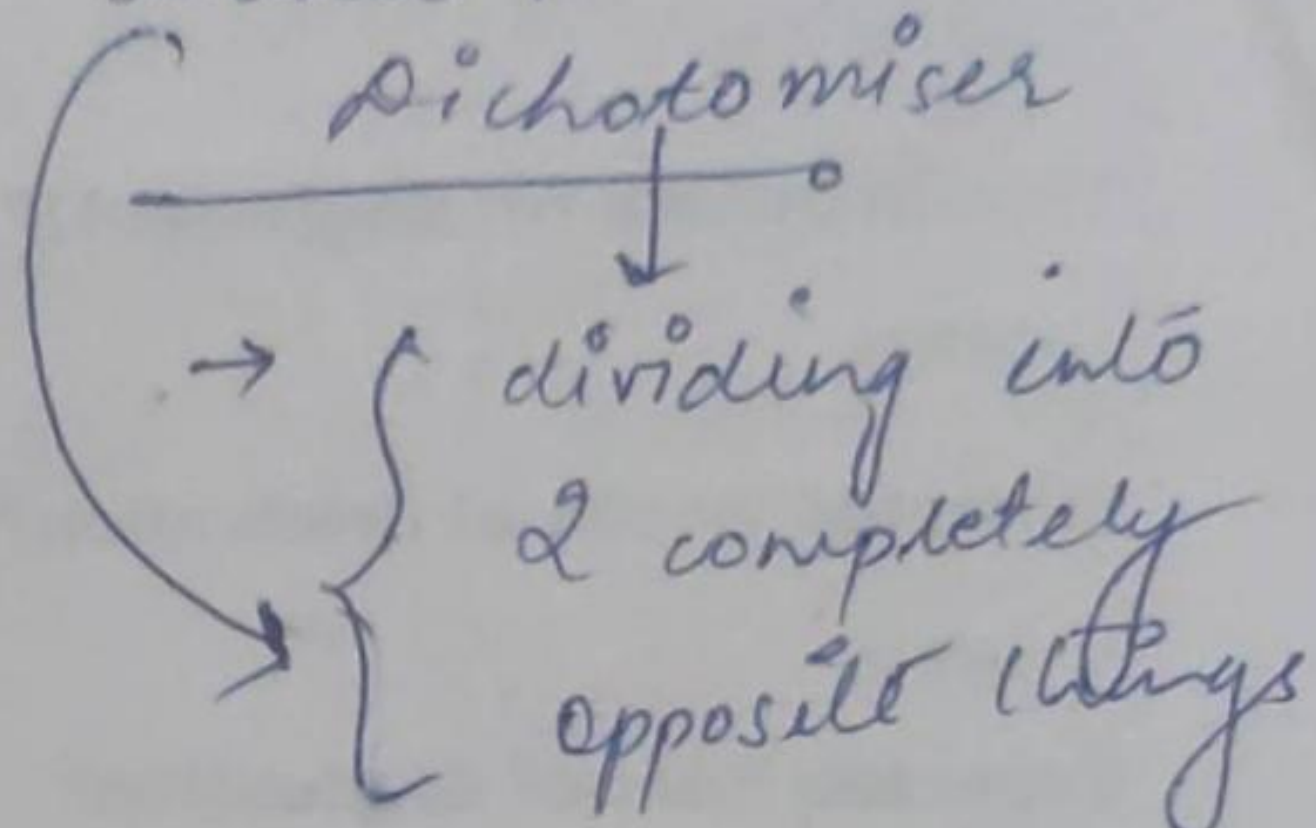 Dichotomiser
→ dividing into
2 completely
opposite things